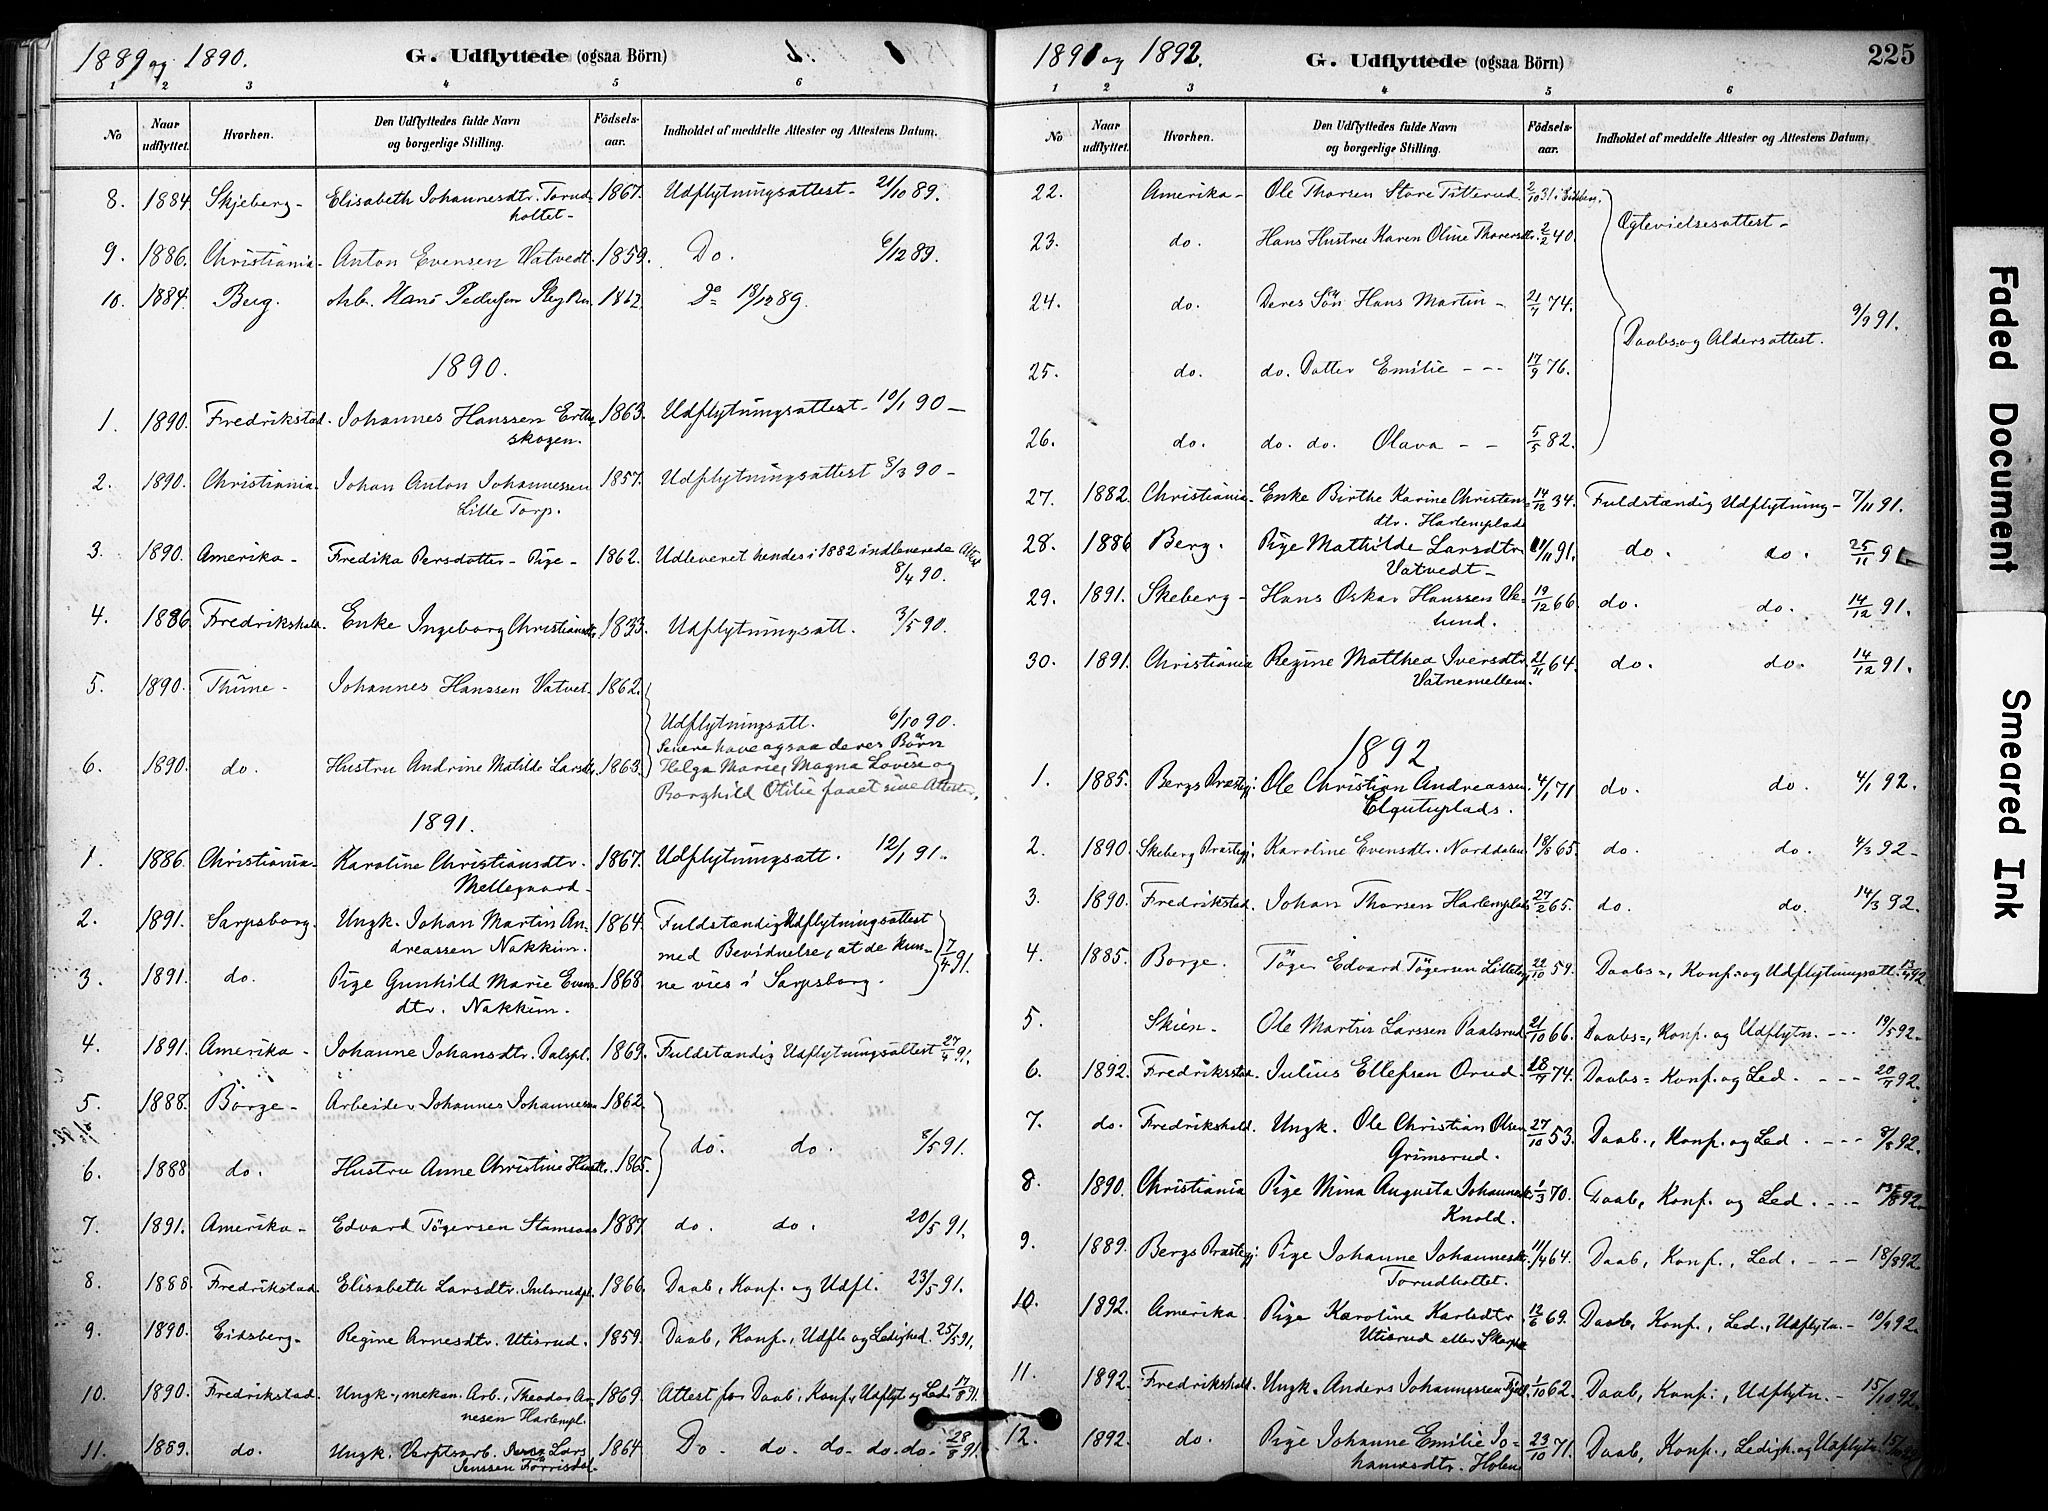 1889 og 1890. G. Udflyttede (ogsaa Börn)
1 2 3 4 5 6
No Naar udflyttet. Hvorhen. Den Udflyttedes fulde Navn og borgerlige Stilling. Födsels-aar. Indholdet af meddelte Attester og Attestens Datum.
8. 1884. Skjeberg- Elisabeth Johannesdtr. Torud- 1867. Udflytningsattest- 21/10 89.
holtet-
9. 1886. Christiania- Anton Evensen Vatvedt. 1859. Do. 6/12 89.
10. 1884. Berg. Arb. Hans Pedersen 1862. Do
1890.
1. 1890. Fredrikstad. Johannes Hanssen Erte- 1863. Udflytningsattest- 10/1 90-
skogen.
2. 1890. Christiania. Johan Anton Johannessen 1857. Udflytningsattest 8/3 90-
Lille Torp.
3. 1890. Amerika- Fredika Persdotter- Pige- 1862. Udleveret hendes i 1882 indleverede Attest
8/4 90.
4. 1886. Fredrikshald. Enke Ingeborg Christiansdtr. 1833. Udflytningsatt. 3/5 90.
5. 1890. Thune- Johannes Hanssen Vatvet- 1862.
Udflytningsatt. 6/10 90.
Senere have ogsaa deres Börn
6. 1890. do. Hustru Andrine Matilde Larsdtr. 1863. Helga Marie, Magna Lovise og
Borghild Otilie faaet sine Attester.
1891.
1. 1886. Christiania- Karoline Christiansdtr. 1867. Udflytningsatt. 12/1 91.
Mellegaard-
2. 1891. Sarpsborg. Ungk. Johan Martin An- 1864. Fuldstændig Udflytningsattest
dreassen Nakkim. med Bevidnelse, at de kun- 7/4 91.
3. 1891. do. Pige Gunhild Marie Evens- 1868. ne vies i Sarpsborg.
dtr. Nakkim.
4. 1891. Amerika- Johanne Johansdtr. Dalspl. 1869. Fuldstændig Udflytningsattest 27/4 91.
5. 1888. Börge- Arbeider Johannes Johannessen 1862.
do. do. 8/5 91.
6. 1888 do. Hustru Anne Christine 1865.
7. 1891. Amerika- Edvard Tögersen 1887. do. do. 20/5 91.
8. 1888. Fredrikstad. Elisabeth Larsdtr. 1866. Daab, Konf. og Udfl. 23/5 91.
9. 1890. Eidsberg- Regine Arnesdtr. Utisrud. 1859. Daab, Konf., Udfl. og Ledighed. 25/5 91.
10. 1890. Fredrikstad. Ungk., mekan. Arb., Theodor Ar- 1869. Attest for Daab, Konf., Udflyt. og Led. 17/8 91.
nesen Harlempl.
11. 1889. do. Ungk. Verftsarb. Lars 1864. Do. do. do. do. do. 28/8 91.
Jenssen
1891 og 1892. G. Udflyttede (ogsaa Börn) 225
1 2 3 4 5 6
No Naar udflyttet. Hvorhen. Den Udflyttedes fulde Navn og borgerlige Stilling. Födsels-aar. Indholdet af meddelte Attester og Attestens Datum.
22. Amerika- Ole Thorsen Store Titterud. 2/10 31 i Eidsberg.
Egtevielsesattest-
23. do. Hans Hustru Karen Oline Thoresdtr. 2/2 40.
24. do. Deres Sön Hans Martin- 74.
9/9 91.
Daabs- og Aldersattest.
25. do. do. Datter Emilie - - - 17/9 76.
26. do. do. do. Olava - - 5/5 82.
27. 1882. Christiania- Enke Birthe Karine Christens- 14/12 34. Fuldstændig Udflytning- 7/11 91.
dtr. Harlemplads
28. 1886 Berg. Pige Mathilde Larsdtr. 91. do. do. 25/11 91
Vatvedt-
29. 1891. Skeberg- Hans Oskar Hanssen 19/12 66. do. do. 14/12 91.
lund.
30. 1891. Christiania Regine Matthea Iversdtr. 21/11 64. do. do. 14/12 91.
Vatnemellem.
1892
1. 1885. Bergs Præstegj: Ole Christian Andreassen 4/1 71 do. do. 4/1 92.
Elgutuplads.
2. 1890. Skeberg Præstegj: Karoline Evensdtr. Norddalen 65. do. do. 4/3 92-
3. 1890. Fredrikstad. Johan Thorsen Harlemplads 27/2 65. do. do. 14/3 92.
4. 1885. Borge. Töger Edvard Tögersen 22/10 59. Daabs-, Konf.- og Udflytningsatt. 92.
5. Skien- Ole Martin Larssen Paalsrud 21/10 66. Daabs-, Konf. og Udflytn. - - - 19/5 92.
6. 1892. Fredriksstad. Julius Ellefsen Orud. 74. Daabs- Konf. og Led. - - - 92.
7. do. Fredrikshald. Ungk. Ole Christian Olsen 27/10 53. Daab., Konf. og Led. - - - 8/8 92.
Grimsrud.
8. 1890. Christiania Pige Mina Augusta Johannesdtr. 1/3 70. Daab, Konf. og Led. - - - 92.
Knold.
9. 1889. Bergs Præstegj: Pige Johanne Johannesdtr. 11/4 64. Daab, Konf., Led. - - - 18/8 92.
Torudholtet.
10. 1892. Amerika. Pige Karoline Karlsdtr. 12/6 69. Daab, Konf., Led., Udflytn.- 10/9 92.
Utisrud eller
11. 1892. Fredrikshald. Ungk. Anders Johannessen 1/10 62. Daab, Konf., Udflytn.- 15/10 92.
12. 1892. do. Pige Johanne Emilie Jo- 23/10 71. Daab, Konf., Ledigh. og Udflytn.
hannesdtr. Holene
Faded Document
Smeared Ink